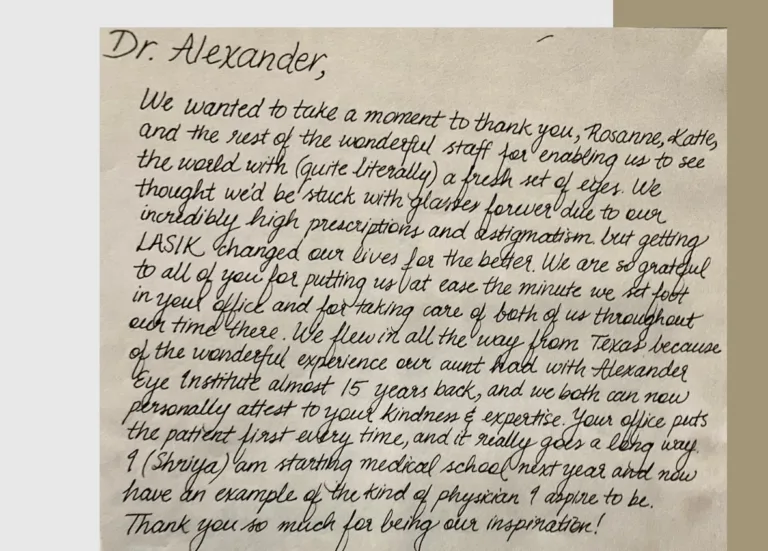 Dr. Alexander,
We wanted to take a moment to thank you, Rosanne, Katie,
and the rest of the wonderful staff for enabling us to see
the world with (quite literally) a fresh set of eyes. We
thought we'd be stuck with glasses forever due to our
incredibly high prescriptions and astigmatism. but getting
LASIK changed our lives for the better. We are so grateful
to all of you for putting us at ease the minute we set foot
in your office and for taking care of both of us throughout
our time there. We flew in all the way from Texas because
of the wonderful experience our aunt had with Alexander
Eye Institute almost 15 years back, and we both can now
personally attest to your kindness & expertise. Your office puts
the patient first every time, and it really goes a long way.
I (Shriya) am starting medical school next year and now
have an example of the kind of physician I aspire to be.
Thank you so much for being our inspiration!